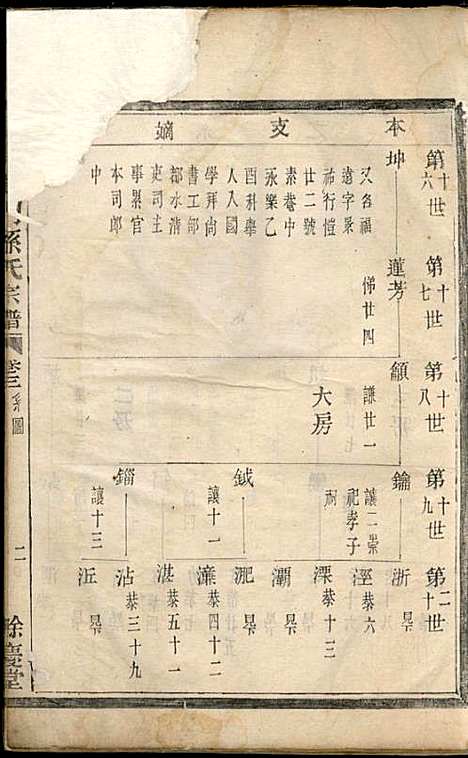 本支嫡
第十六世
坤
又名福
遠字景
祐行愷
廿二號
素菴中
永樂乙
酉科舉
人入國
學拜尚
書工部
都水清
吏司主
事累官
本司郎
中
第十七世
蓮芳
悌廿四
第十八世
額
謙廿一
大房
第十九世
鑰
讓二崇
祀孝子
祠
鉞
讓十一
錙
讓十三
第二十世
浙
早
涇恭六
溧恭十三
灞
早
淝
早
濂恭四十二
湛恭五十一
沾恭三十九
洰
早
孫氏宗譜
卷三
系圖
二
餘慶堂